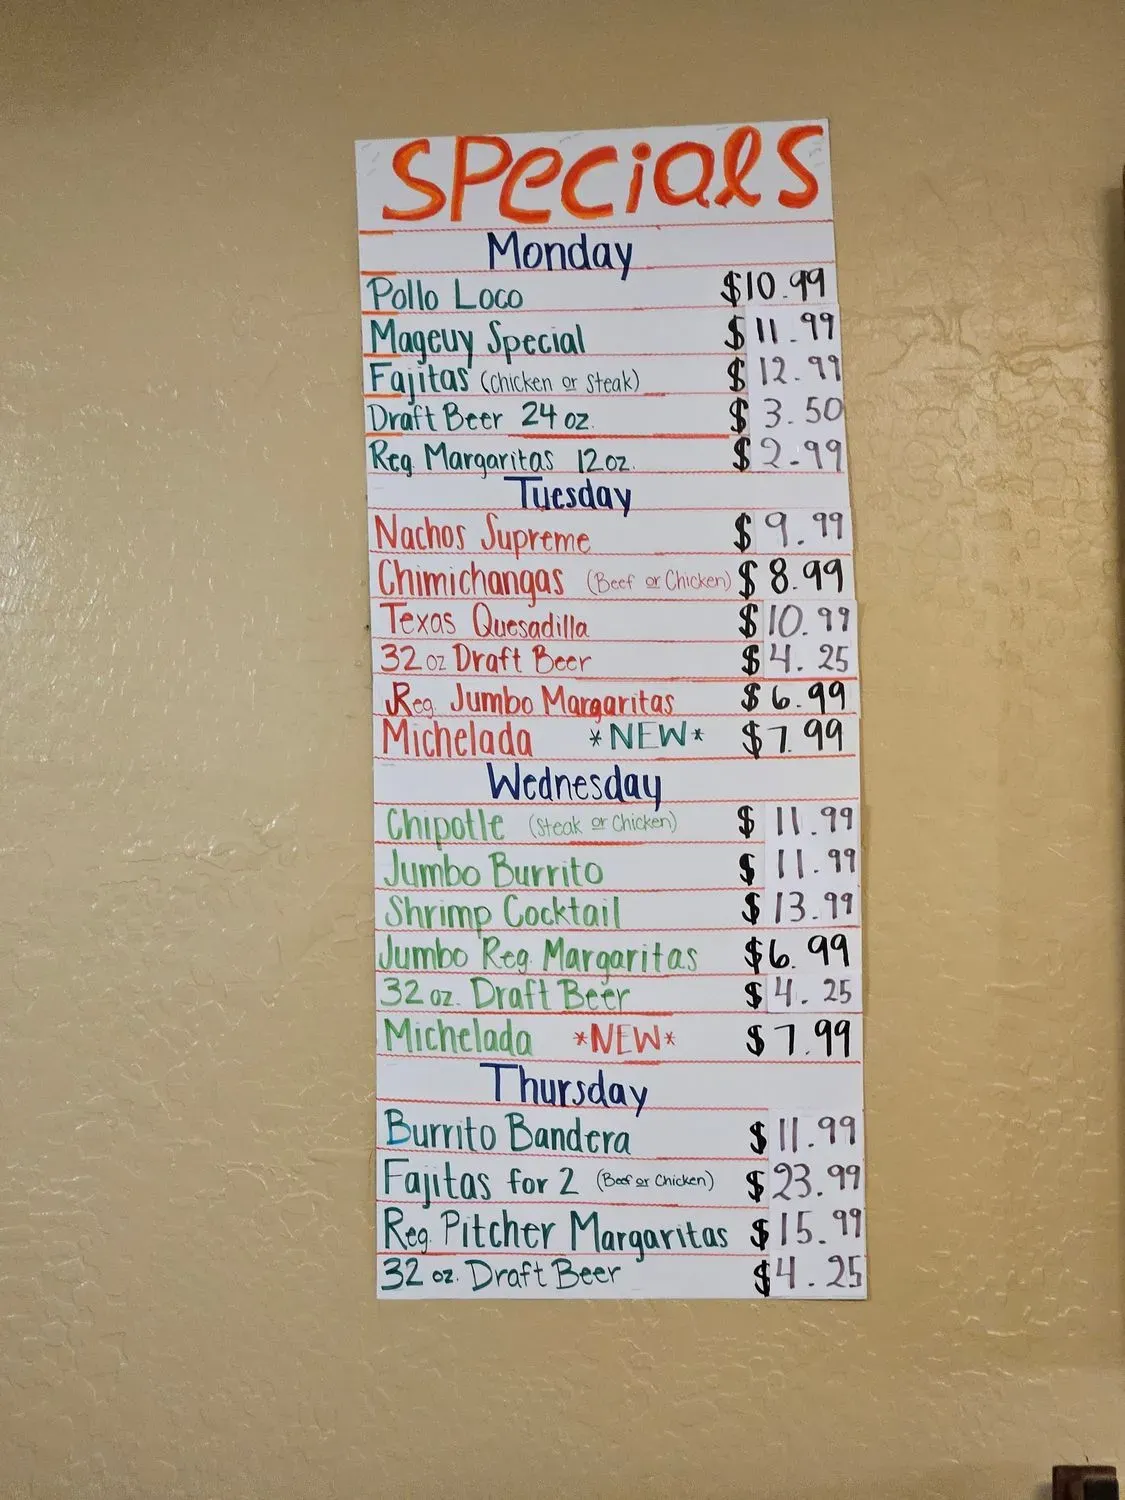 SPecials
Monday
Pollo Loco $10.99
Mageuy Special $11.99
Fajitas (chicken or steak) $12.99
Draft Beer 24 oz. $3.50
Reg. Margaritas 12oz. $2.99
Tuesday
Nachos Supreme $9.99
Chimichangas (Beef or Chicken) $8.99
Texas Quesadilla $10.99
32 oz Draft Beer $4.25
Reg. Jumbo Margaritas $6.99
Michelada *NEW* $7.99
Wednesday
Chipotle (Steak or Chicken) $11.99
Jumbo Burrito $11.99
Shrimp Cocktail $13.99
Jumbo Reg. Margaritas $6.99
32 oz. Draft Beer $4.25
Michelada *NEW* $7.99
Thursday
Burrito Bandera $11.99
Fajitas for 2 (Beef or Chicken) $23.99
Reg. Pitcher Margaritas $15.99
32 oz. Draft Beer $4.25